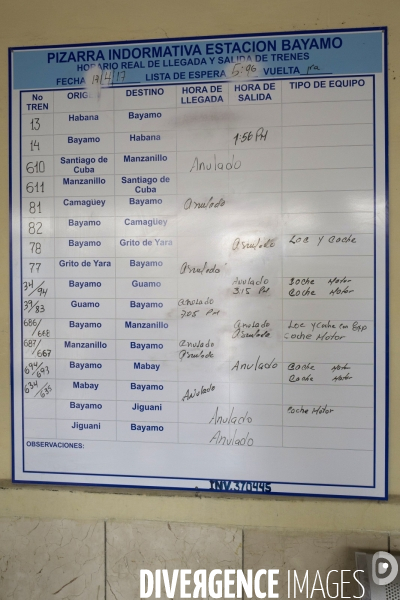 PIZARRA INDORMATIVA ESTACION BAYAMO
HORARIO REAL DE LLEGADA Y SALIDA DE TRENES
FECHA 17/4/17 LISTA DE ESPERA 5:96 VUELTA
No TREN ORIGEN DESTINO HORA DE LLEGADA HORA DE SALIDA TIPO DE EQUIPO
13 Habana Bayamo
14 Bayamo Habana 1:56 PM
610 Santiago de Cuba Manzanillo Anulado
611 Manzanillo Santiago de Cuba
81 Camagüey Bayamo Anulado
82 Bayamo Camagüey
78 Bayamo Grito de Yara Anulado Loc y Coche
77 Grito de Yara Bayamo Anulado
34/94 Bayamo Guamo Anulado 3:15 PM Coche Motor Coche Motor
39/83 Guamo Bayamo Anulado 305 PM
686/688 Bayamo Manzanillo Anulado Anulado Loc y Coche en Exp Coche Motor
687/667 Manzanillo Bayamo Anulado Anulado
694/693 Bayamo Mabay Anulado Coche Motor Coche Motor
634/635 Mabay Bayamo Anulado
Bayamo Jiguani Anulado Coche Motor
Jiguani Bayamo Anulado
OBSERVACIONES:
INV.370445
DIVERGENCE IMAGES